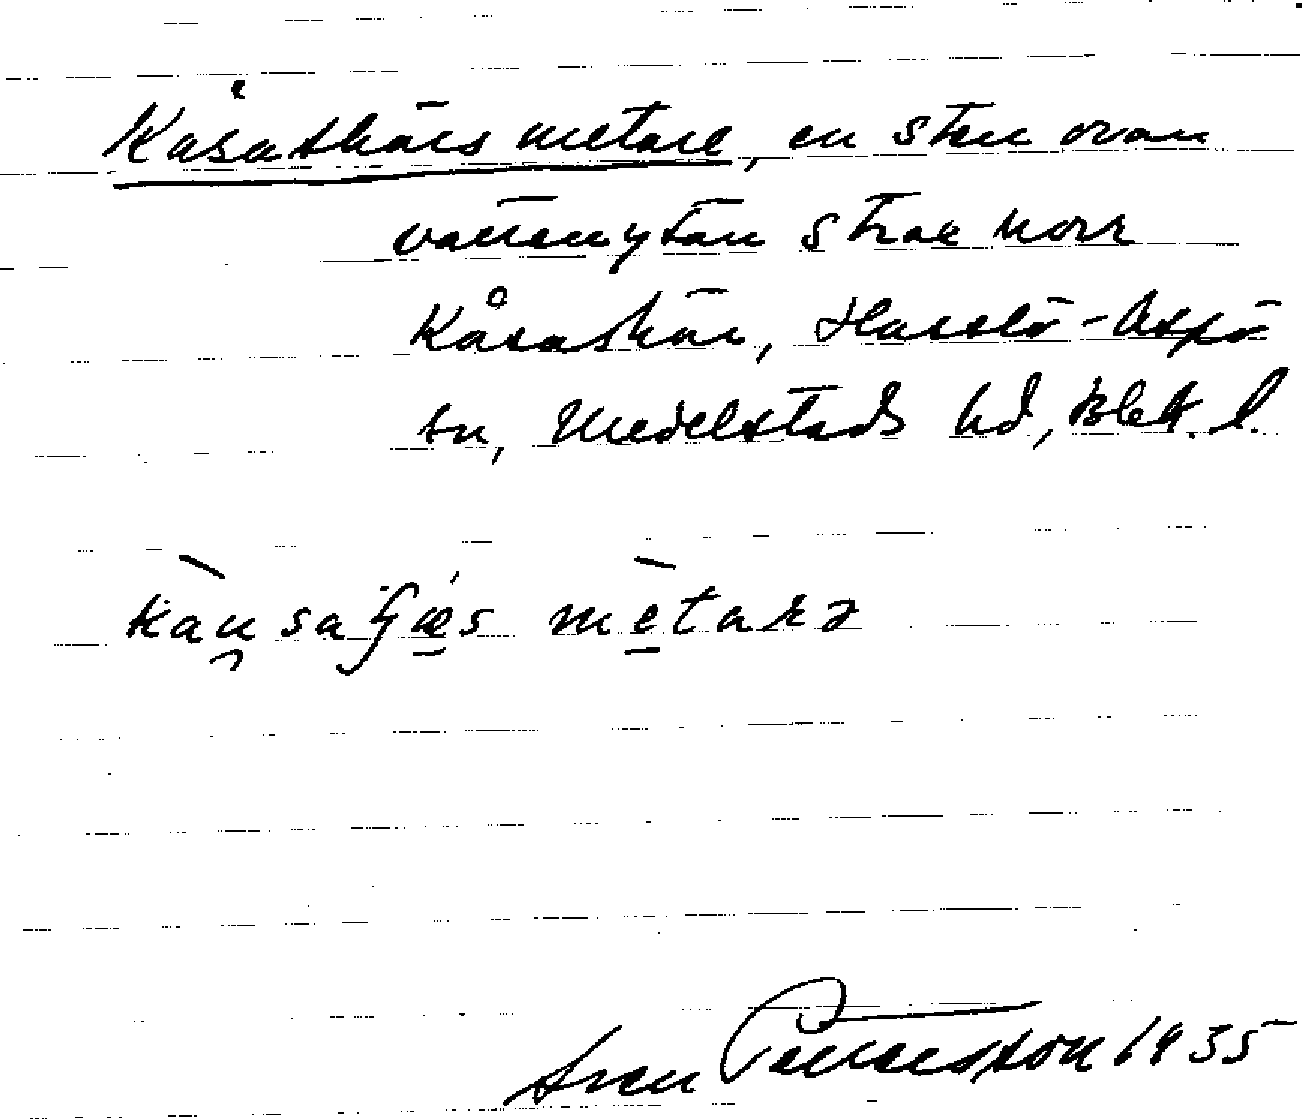 Kåsaskärs metare, en sten ovan
vattenytan strax norr
Kåsaskär, Hasslö-Aspö
sn, Medelstads hd, Blek. l.
Sven Pettersson 1935